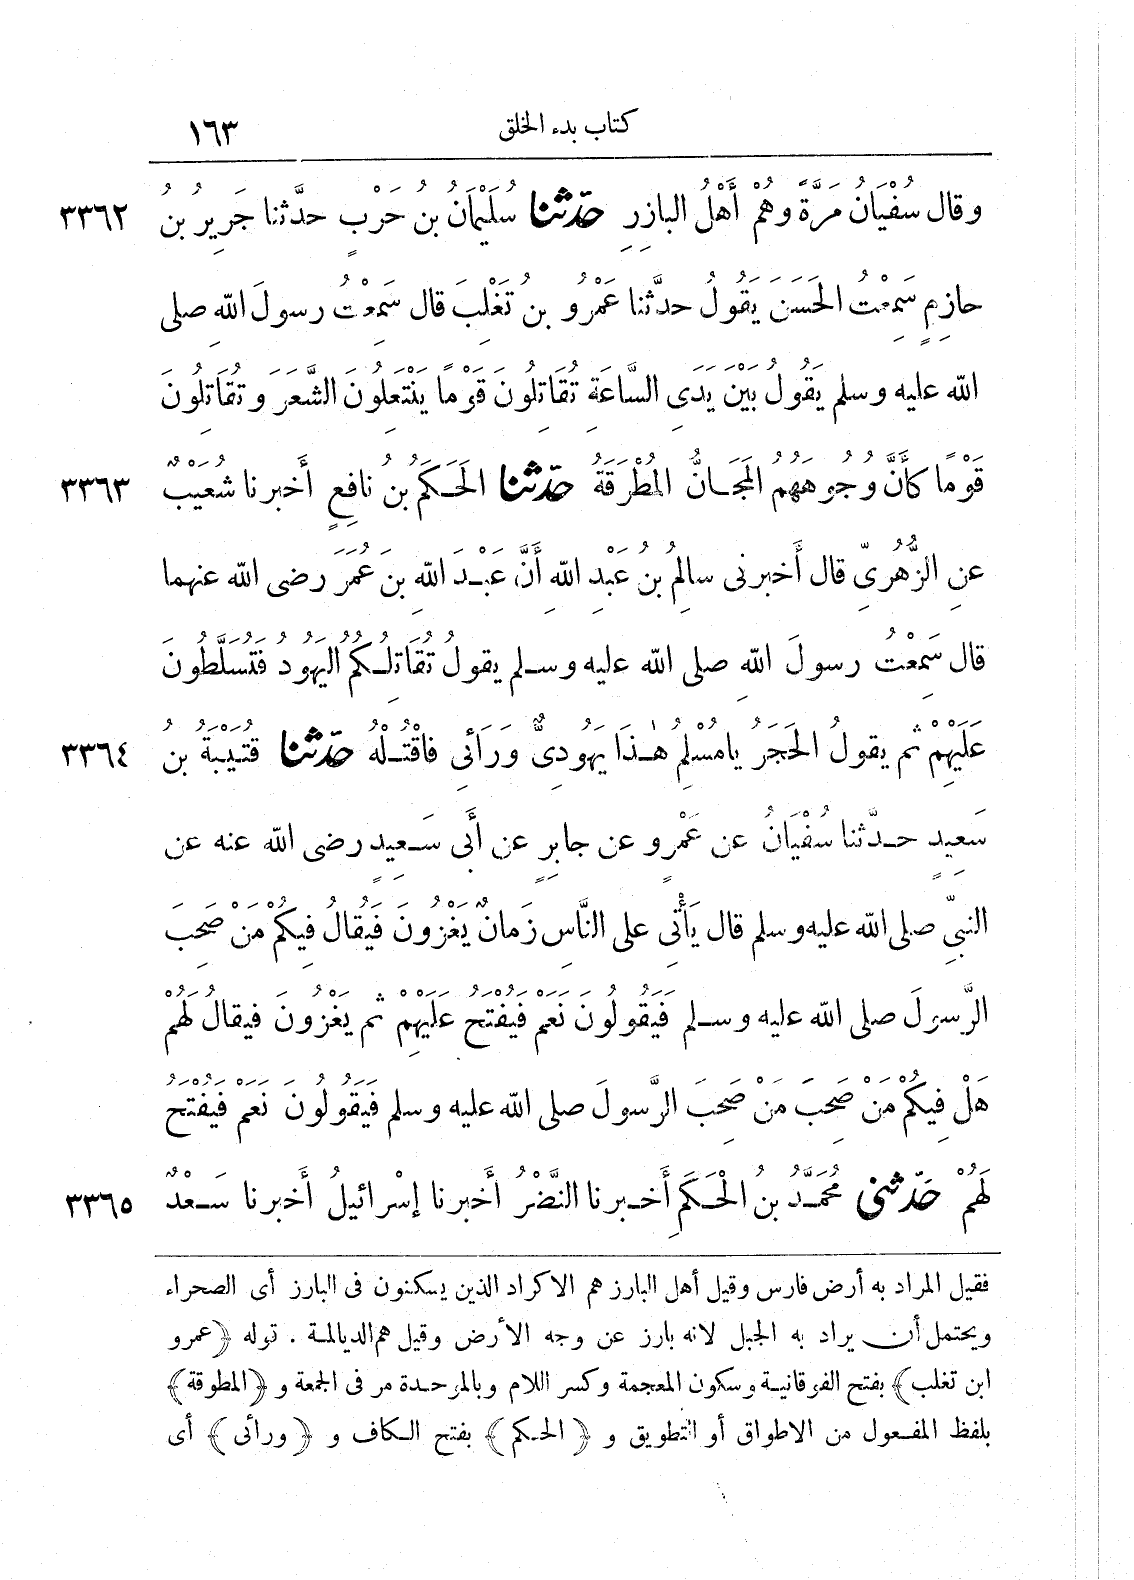 كتاب بدء الخلق ١٦٣
وقال سُفْيَانُ مَرَّةً وهُمْ أَهْلُ البازِرِ حدّثنا سُلَيْمَانُ بن حَرْبٍ حدَّثنا جَرِيرُ بنُ ٣٣٦٢
حازِمٍ سَمِعْتُ الحَسَنَ يَقُولُ حدَّثنا عَمْرُو بنُ تَغْلِبَ قال سَمِعْتُ رسولَ الله صلى
الله عليه وسلم يَقُولُ بَيْنَ يَدَيِ السَّاعَةِ تُقَاتِلُونَ قَوْمًا يَنْتَعِلُونَ الشَّعَرَ وتُقَاتِلُونَ
قَوْمًا كأَنَّ وُجُوهَهُمُ المَجَانُّ المُطْرَقَةُ حدّثنا الحَكَمُ بنُ نافِعٍ أَخبرنا شُعَيْبٌ ٣٣٦٣
عنِ الزُّهْرِيِّ قال أَخبرنى سالِمُ بنُ عَبْدِ اللهِ أَنَّ عَبْدَ اللهِ بنَ عُمَرَ رضى الله عنهما
قال سَمِعْتُ رسولَ اللهِ صلى الله عليه وسلم يقولُ تُقَاتِلُكُمُ اليَهُودُ فَتُسَلَّطُونَ
عَلَيْهِمْ ثم يقولُ الحَجَرُ يامُسْلِمُ هٰذَا يَهُودِىٌّ وَرَائِى فاقْتُلْهُ حدّثنا قُتَيْبَةُ بنُ ٣٣٦٤
سَعِيدٍ حدَّثنا سُفْيَانُ عن عَمْرٍو عن جابِرٍ عن أَبى سَعِيدٍ رضى الله عنه عن
النبىِّ صلى الله عليه وسلم قال يَأْتِى على النَّاسِ زَمانٌ يَغْزُونَ فَيُقَالُ فِيكُمْ مَنْ صَحِبَ
الرَّسولَ صلى الله عليه وسلم فَيَقُولُونَ نَعَمْ فَيُفْتَحُ عَلَيْهِمْ ثم يَغْزُونَ فيقالُ لَهُمْ
هَلْ فِيكُمْ مَنْ صَحِبَ مَنْ صَحِبَ الرَّسولَ صلى الله عليه وسلم فَيَقُولُونَ نَعَمْ فَيُفْتَحُ
لَهُمْ حدّثنى مُحَمَّدُ بنُ الحَكَمِ أَخبرنا النَّضْرُ أَخبرنا إسْرائيلُ أَخبرنا سَعْدٌ ٣٣٦٥
فقيل المراد به أرض فارس وقيل أهل البارز هم الاكراد الذين يسكنون فى البارز أى الصحراء
ويحتمل أن يراد به الجبل لانه بارز عن وجه الأرض وقيل هم الديالمة . قوله ﴿عمرو
ابن تغلب﴾ بفتح الفوقانية وسكون المعجمة وكسر اللام وبالموحدة مر فى الجمعة و ﴿المطوقة﴾
بلفظ المفعول من الاطواق أو التطويق و ﴿الحكم﴾ بفتح الكاف و ﴿ورائى﴾ أى